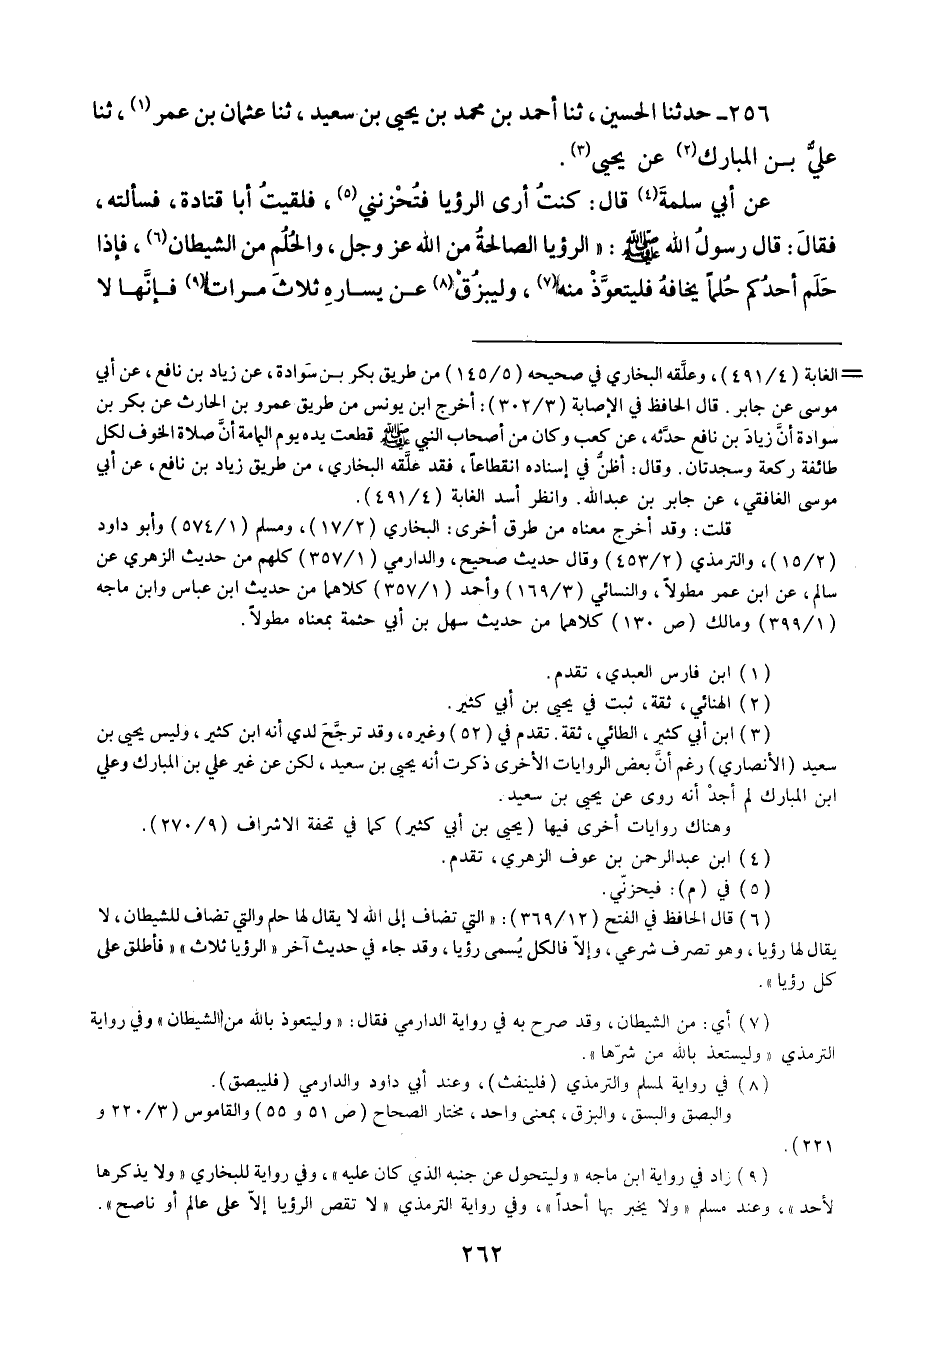 ٢٥٦ـ حدثنا الحسين ، ثنا أحمد بن محمد بن يحيى بن سعيد ، ثنا عثمان بن عمر(١) ، ثنا
عليُّ بـن المبارك(٢) عن يحيى(٣) .
عن أبي سلمةَ(٤) قال : كنتُ أرى الرؤيا فتُحْزنني(٥) ، فلقيتُ أبا قتادة ، فسألته ،
فقالَ : قال رسولُ الله ﷺ : « الرؤيا الصالحةُ من الله عز وجل ، والحُلُم من الشيطان(٦) ، فإذا
حَلَم أحدُكم حُلماً يخافهُ فليتعوَّذْ منه(٧) ، وليبزُقْ(٨) عـن يسارهِ ثلاثَ مـرات(٩) فـإنَّهـا لا
= الغابة (٤/ ٤٩١) ، وعلَّقه البخاري في صحيحه (٥/ ١٤٥) من طريق بكر بـن سَوادة ، عن زياد بن نافع ، عن أبي
موسى عن جابر . قال الحافظ في الإصابة (٣/ ٣٠٢) : أخرج ابن يونس من طريق عمرو بن الحارث عن بكر بن
سوادة أنَّ زيادَ بن نافع حدَّثه ، عن كعب وكان من أصحاب النبي ﷺ قطعت يده يوم اليمامة أنَّ صلاة الخوف لكل
طائفة ركعة وسجدتان . وقال : أظنُّ في إسناده انقطاعاً ، فقد علَّقه البخاري ، من طريق زياد بن نافع ، عن أبي
موسى الغافقي ، عن جابر بن عبدالله . وانظر أسد الغابة (٤/ ٤٩١) .
قلت : وقد أخرج معناه من طرق أخرى : البخاري (٢/ ١٧) ، ومسلم (١/ ٥٧٤) وأبو داود
(٢/ ١٥) ، والترمذي (٢/ ٤٥٣) وقال حديث صحيح ، والدارمي (١/ ٣٥٧) كلهم من حديث الزهري عن
سالم ، عن ابن عمر مطولاً ، والنسائي (٣/ ١٦٩) وأحمد (١/ ٣٥٧) كلاهما من حديث ابن عباس وابن ماجه
(١/ ٣٩٩) ومالك (ص ١٣٠) كلاهما من حديث سهل بن أبي حثمة بمعناه مطولاً .
(١) ابن فارس العبدي ، تقدم .
(٢) الهنائي ، ثقة ، ثبت في يحيى بن أبي كثير .
(٣) ابن أبي كثير ، الطائي ، ثقة . تقدم في (٥٢) وغيره ، وقد ترجَّحَ لدي أنه ابن كثير ، وليس يحيى بن
سعيد (الأنصاري) رغم أنَّ بعض الروايات الأخرى ذكرت أنه يحيى بن سعيد ، لكن عن غير علي بن المبارك وعلي
ابن المبارك لم أجدْ أنه روى عن يحيى بن سعيد .
وهناك روايات أخرى فيها (يحيى بن أبي كثير) كما في تحفة الاشراف (٩/ ٢٧٠) .
(٤) ابن عبدالرحمن بن عوف الزهري ، تقدم .
(٥) في (م) : فيحزنّي .
(٦) قال الحافظ في الفتح (١٢/ ٣٦٩) : « التي تضاف إلى الله لا يقال لها حلم والتي تضاف للشيطان ، لا
يقال لها رؤيا ، وهو تصرف شرعي ، وإلاّ فالكل يُسمى رؤيا ، وقد جاء في حديث آخر « الرؤيا ثلاث » « فأطلق على
كل رؤيا » .
(٧) أي : من الشيطان ، وقد صرح به في رواية الدارمي فقال : « وليتعوذ بالله من الشيطان » وفي رواية
الترمذي « وليستعذ بالله من شرّها » .
(٨) في رواية لمسلم والترمذي (فلينفث) ، وعند أبي داود والدارمي (فليبصق) .
والبصق والبسق ، والبزق ، بمعنى واحد ، مختار الصحاح (ص ٥١ و ٥٥) والقاموس (٣/ ٢٢٠ و
٢٢١) .
(٩) زاد في رواية ابن ماجه « وليتحول عن جنبه الذي كان عليه » ، وفي رواية للبخاري « ولا يذكرها
لأحد » ، وعند مسلم « ولا يخبر بها أحداً » ، وفي رواية الترمذي « لا تقص الرؤيا إلاّ على عالم أو ناصح » .
٢٦٢